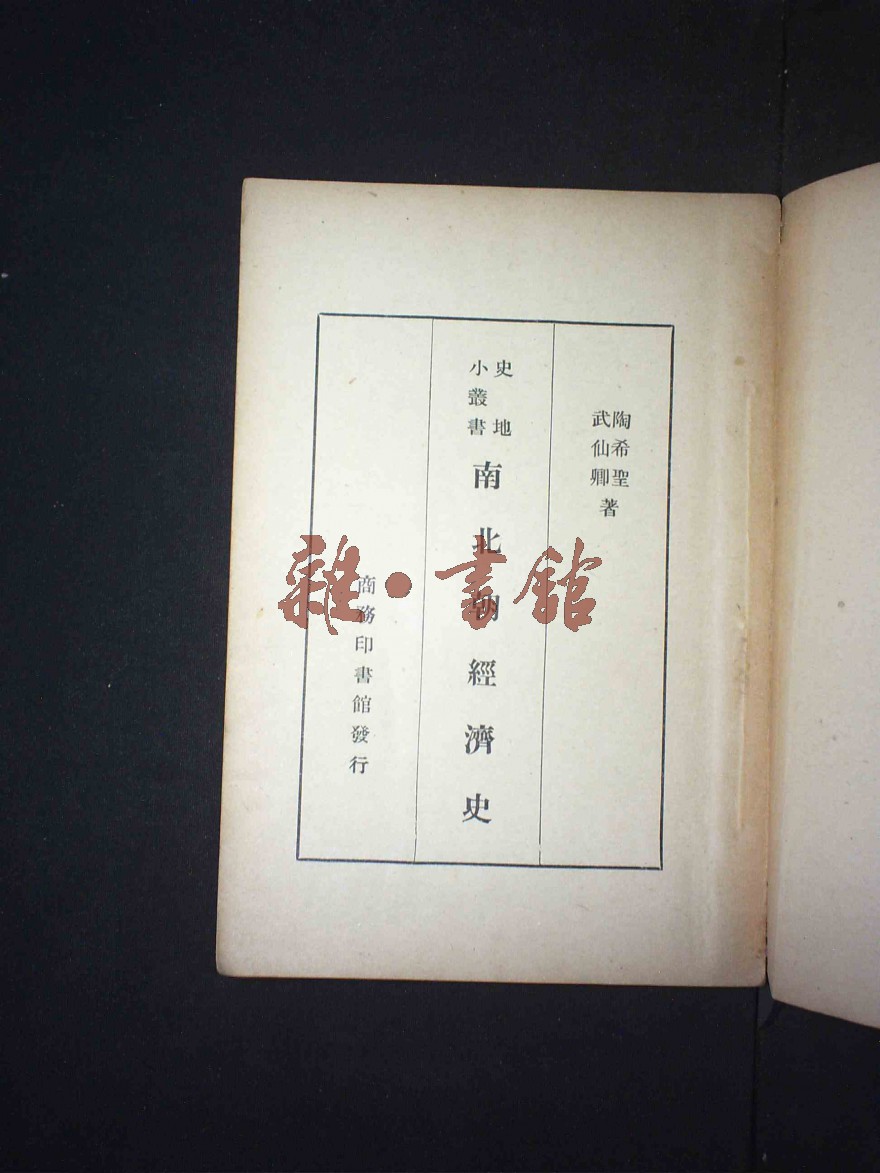 陶希聖
武仙卿
著
史地
小叢書
南北朝經濟史
商務印書館發行
雜·書館